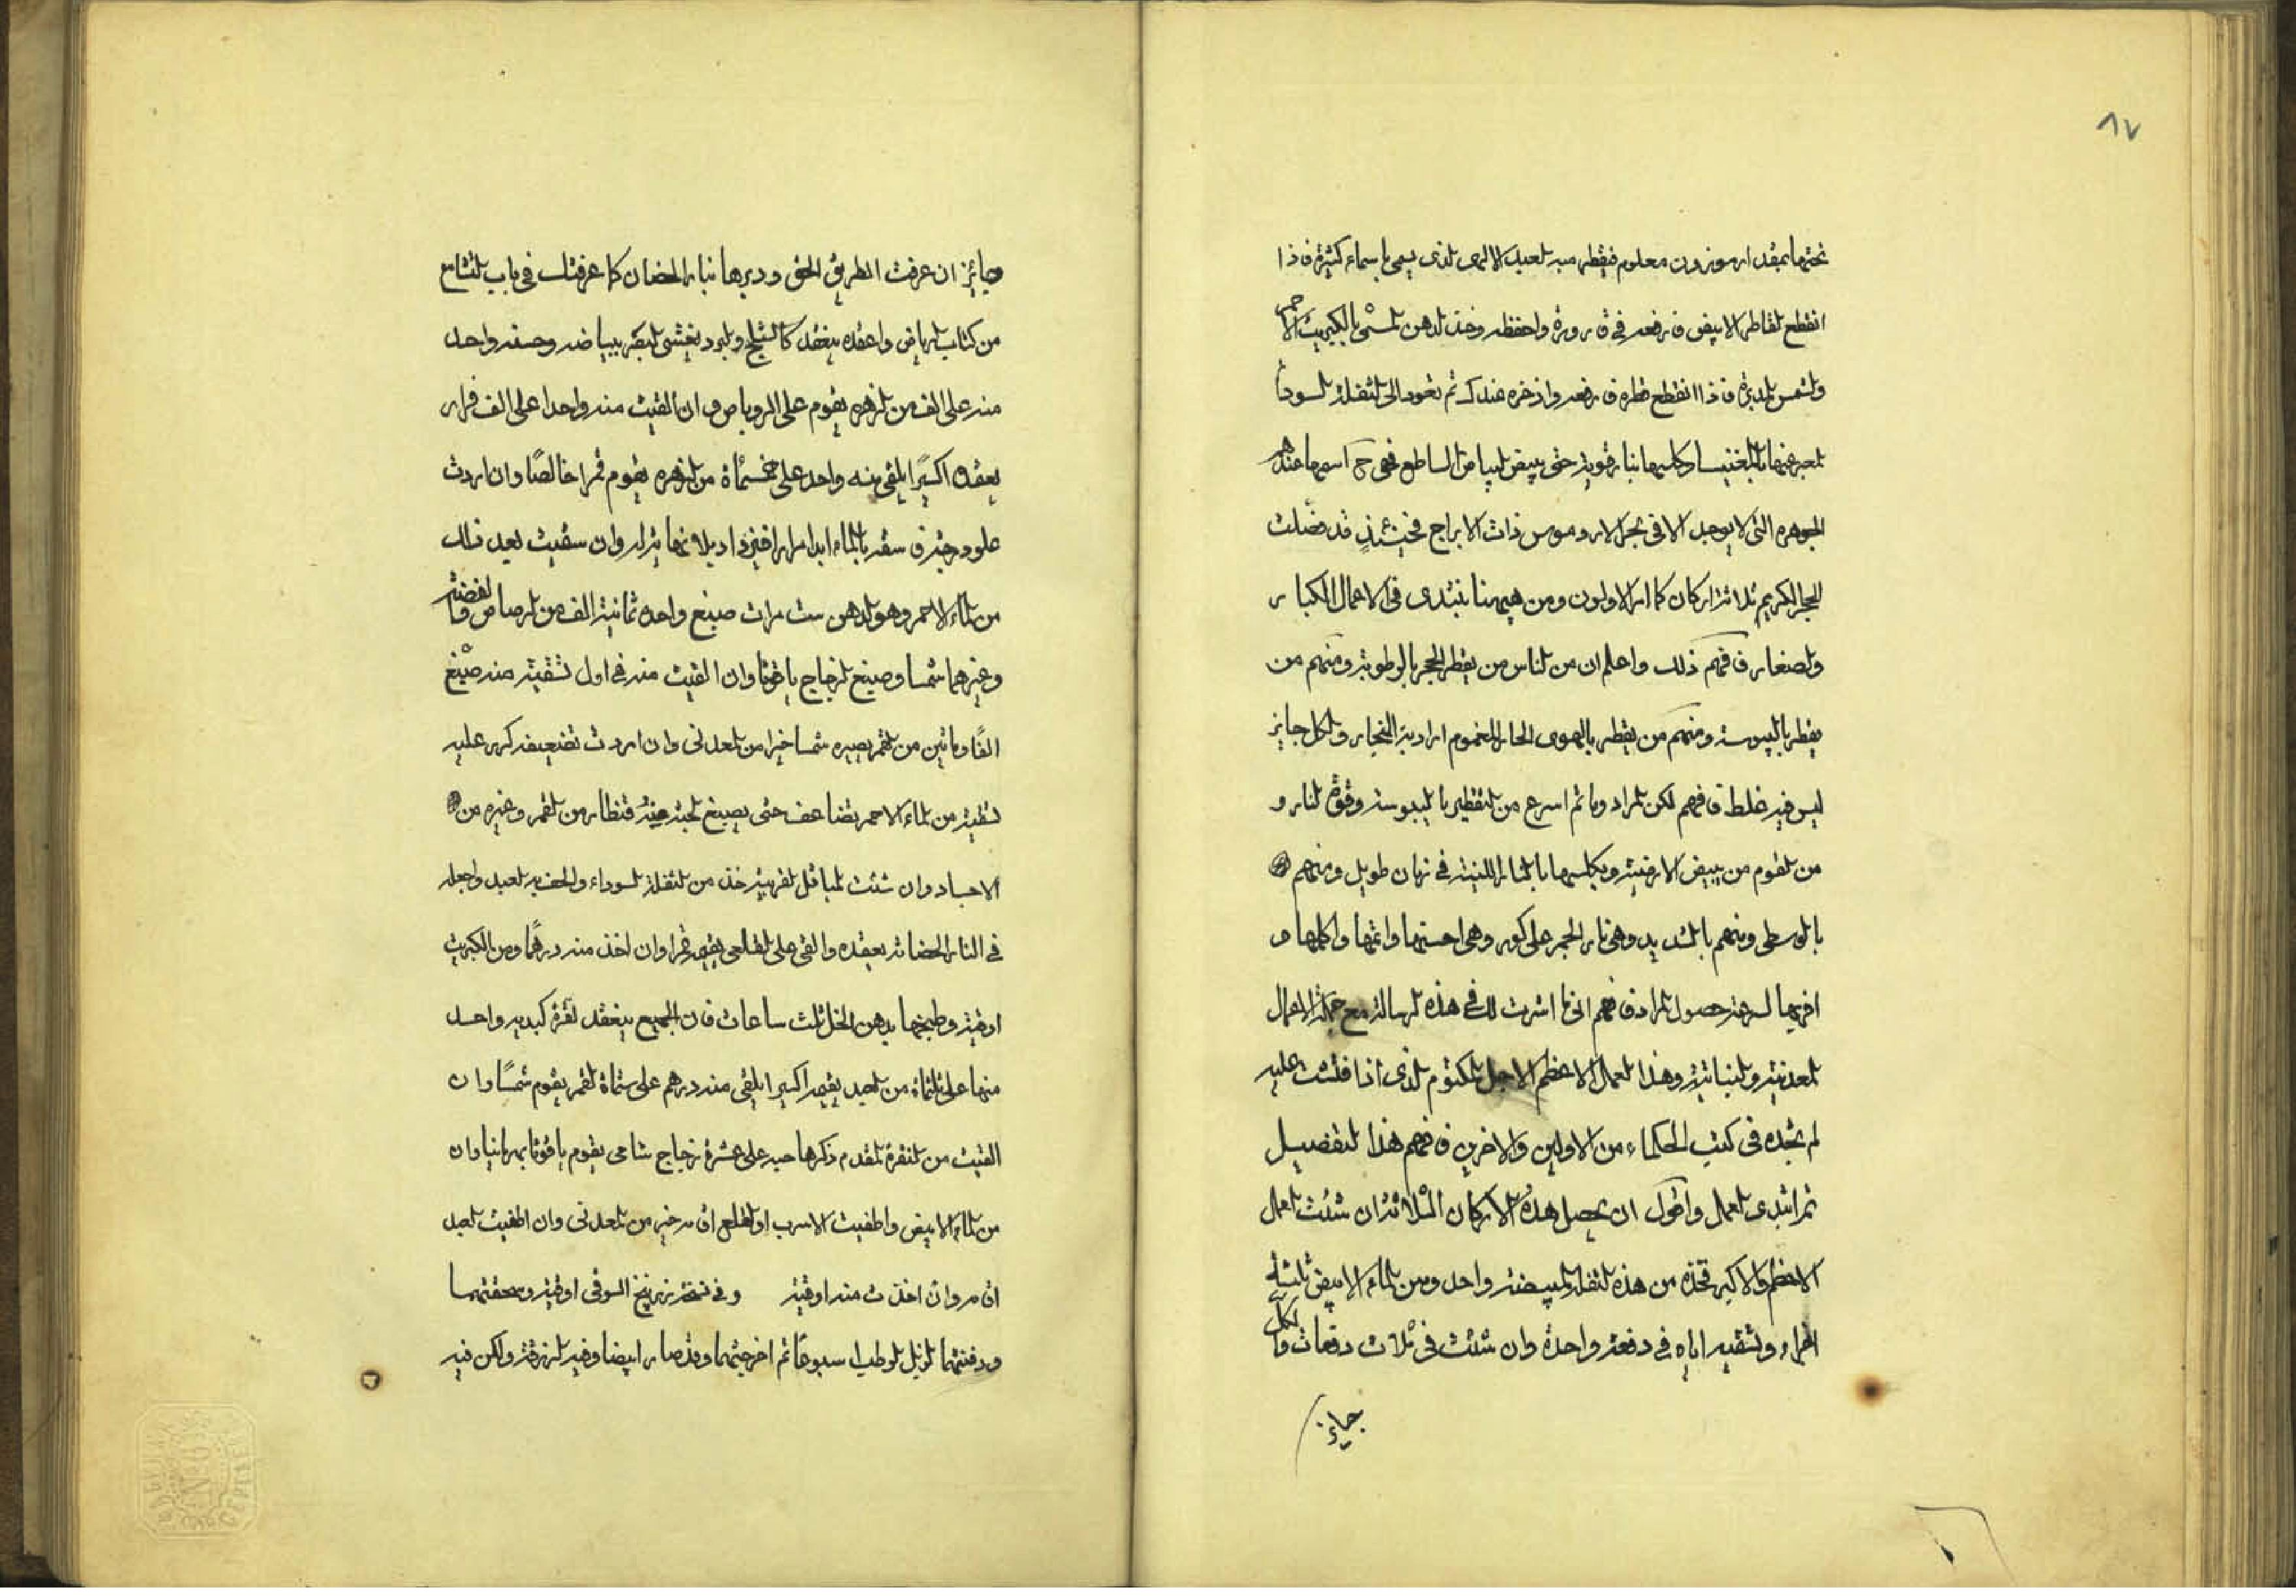 ٨٧
تحتها بمقدار موزون معلوم فيقطر منه العبد الالهى الذى يسمى باسماء كثيرة فاذا
انقطع القاطر الابيض فارفعه فى قارورة واحفظه وخذ الدهن المسمى بالكبريت الاحمر
والشمس المدبرة فاذا انقطع قطره فارفعه واذخره عندك ثم تعود الى الثفلة السوداء
المعبر عنها بالمغنيسا وكلسها بنار قوية حتى يبيض البياض الساطع فهى ح اسمها عندهم
الجوهره التى لا يوجد الا فى بحر الاردموس ذات الابراج فحينئذٍ قد فصلت
الحجر الكريم ثلاثة اركان كما امر الاولون ومن هيهنا نبتدى فى الاعمال الكبار
والصغار فافهم ذلك واعلم ان من الناس من يقطر الحجر بالرطوبة ومنهم من
يقطر باليبوسة ومنهم من يقطر بالهوى الحار المغموم اراد به البخار والكل جايز
ليس فيه غلط فافهم لكن المراد وما ثم اسرع من التقطير باليبوسة وقوة النار و
من القوم من يبيض الارضية ويكلسها بالنار اللينة فى زمان طويل ومنهم
بالوسطى ومنهم بالشديد وهى نار الجمر على كور وهى احسنها واتمها واكملها و
اقربها لسرعة حصول المراد فافهم انى ما اشرت لك فى هذه الرسالة مع جملة الاعمال
المعدنية والنباتية وهذا العمل الاعظم الاجل المكتوم الذى اذا فتشت عليه
لم تجده فى كتب الحكماء من الاولين والاخرين فافهم هذا التفصيل
ثم ابتدى العمل واقول ان يحصل هذه الاركان الثلاثة ان شئت العمل
الاعظم والاكبر فخذه من هذه الثفلة المبيضة واحد ومن الماء الابيض ثلثة
اجزاء وتسقيه اياه فى دفعة واحدة وان شئت فى ثلاث دفعات فالكل
جايز
وجايز ان عرفت الطريق الحق ودبرها بنار الحضان كما عرفتك فى باب التاسع
من كتاب الرياض واعقده ينعقد كالثلج والبرد يغشى البصر ببياضه وحسنه واحد
منه على الف من الزهره يقوم على الروباص وان القيت منه واحدا على الف فرار
يعقده اكسيرًا يلقى منه واحد على خمسمأة من الزهره يقوم قمرا خالصًا وان اردت
علو درجته فاسقه بالماء ابدا مرارا فيزداد بلا نهاية له وان سقيت بعد ذلك
من الماء الاحمر وهو الدهن ست مرات صبغ واحده ثمانية الف من الرصاص والفضة
وغيرهما شمسا وصبغ الزجاج ياقوتا وان القيت منه فى اول تسقية منه صبغ
الفًا وماتين من القمر يصيره شمسا خيرا من المعدنى وان اردت تضعيفه كرر عليه
تسقية من الماء الاحمر يتضاعف حتى يصبغ الحبة منه قنطار من القمر وغيره من
الاجساد وان شئت المباقل القريبة خذ من الثفلة السوداء والحقه العبد واجعله
فى النار الحضانة يعقده والقى على القلعى يقيمه قمرا وان اخذ منه درهمًا ومن الكبريت
اوقية وطبخها بدهن الخل ثلث ساعات فان الجميع ينعقد نقرة كبديه واحد
منها على ثلثماة من العبد يقيمه اكسيرا يلقى منه درهم على ستماة القمر يقوم شمسًا وان
القيت من النقرة المقدم ذكرها حبه على عشرة زجاج شامى يقوم ياقوتا بهرمانيا وان
من الماء الابيض واطفيت الاسرب او القلع اقام خير من المعدنى وان اطفيت العبد
اقام وان اخذت منه اوقية وفى نسخة زرنيخ السوقى اوقية وسحقتهما
ودفنتهما الزبل الرطب اسبوعًا ثم اخرجتهما وقد صار ابيضا وفيه الزرقة ولكن فيه